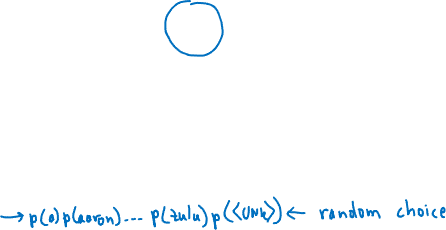 → p(a) p(aaron) ... p(zulu) p(<UNK>) ← random choice